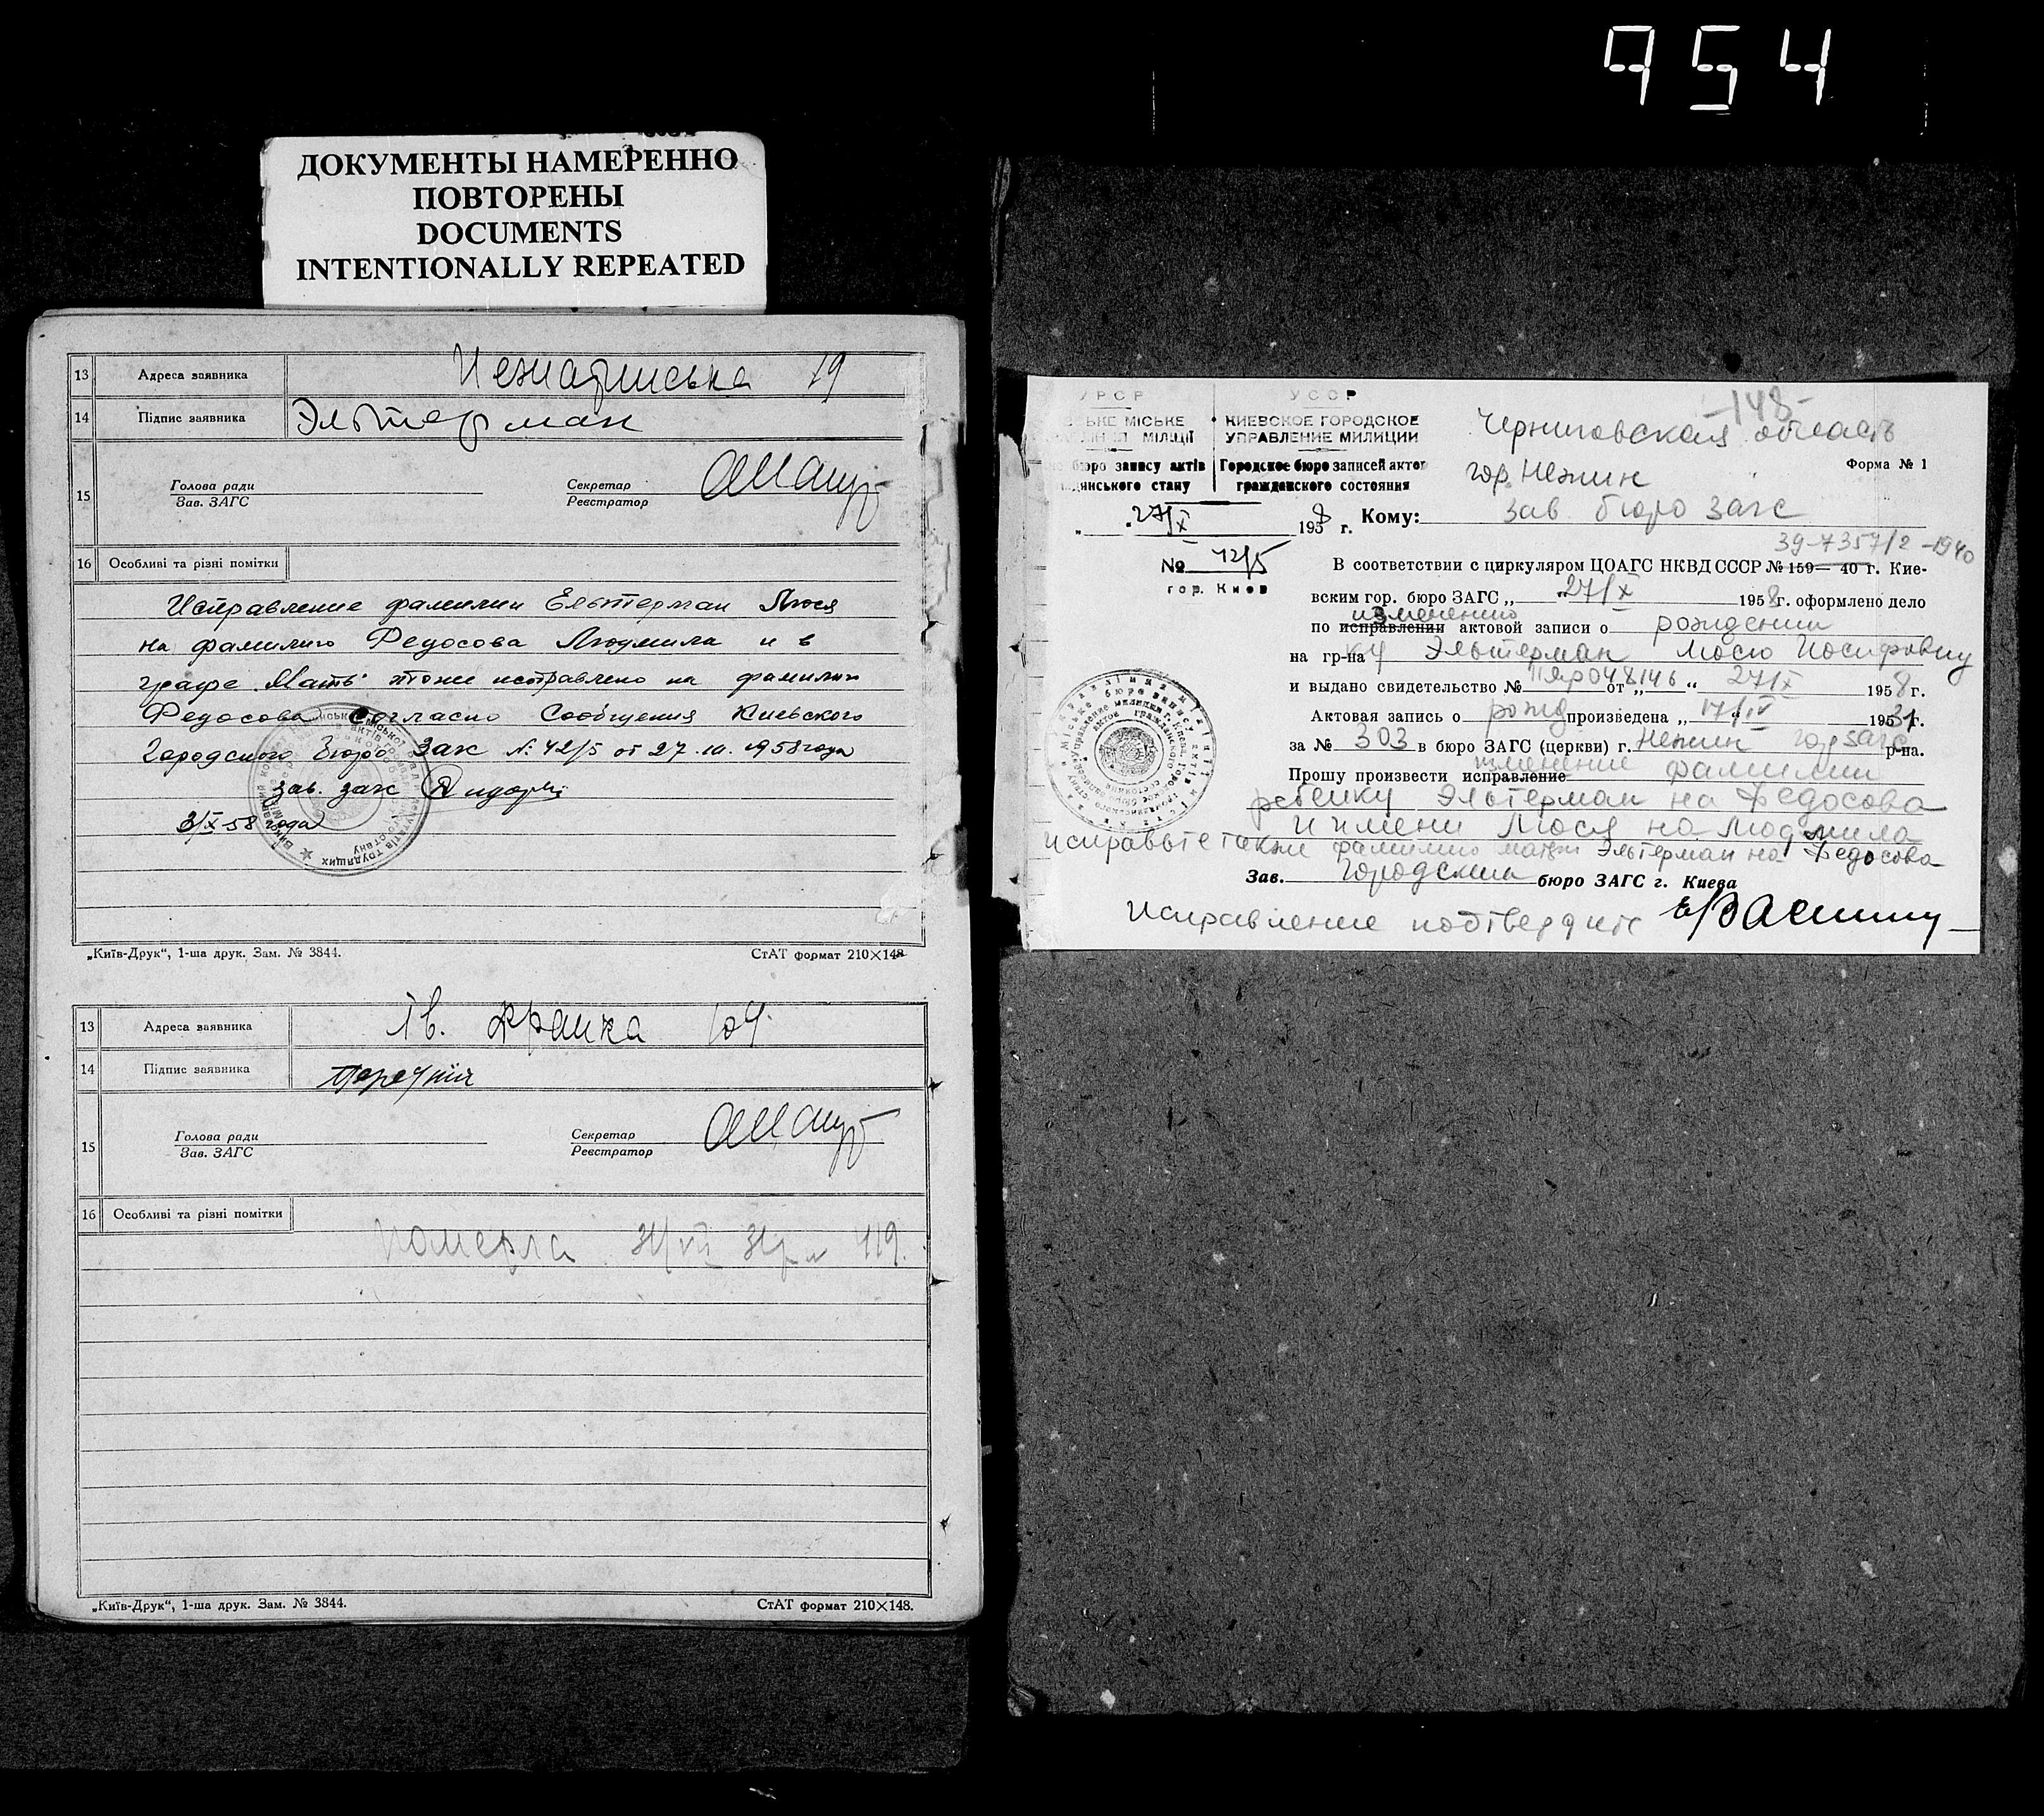 954
ДОКУМЕНТЫ НАМЕРЕННО
ПОВТОРЕНЫ
DOCUMENTS
INTENTIONALLY REPEATED
13 Адреса заявника 19
14 Підпис заявника Эльтерман
15 Голова ради
Зав. ЗАГС
Секретар
Реєстратор
16 Особливі та різні помітки
Исправление фамилии Ельтерман Люся
на фамилию Федосова Людмила и в
графе "Мать" тоже исправлено на фамилию
Федосова согласно Сообщения Киевского
Городского Бюро Загс №: 42/5 от 27.IX. 1958 года
зав. загс
3/X-58 года
„Київ-Друк“, 1-ша друк. Зам. № 3844. СтАТ формат 210×148
13 Адреса заявника Ів. Франка 104
14 Підпис заявника
15 Голова ради
Зав. ЗАГС
Секретар
Реєстратор
16 Особливі та різні помітки
Померла 419.
„Київ-Друк“, 1-ша друк. Зам. № 3844. СтАТ формат 210×148.
УРСР
МІСЬКЕ
МІЛІЦІЇ
бюро запису актів
стану
УССР
КИЕВСКОЕ ГОРОДСКОЕ
УПРАВЛЕНИЕ МИЛИЦИИ
Городское бюро записей актов
гражданского состояния
-148-
Черниговская область
Форма № 1
гор. Нежин
„ 27/X 1958 г. Кому: зав. бюро загс
№ 42/5
гор. Киев
39-7357/2-1940
В соответствии с циркуляром ЦОАГС НКВД СССР № 159— 40 г. Кие-
вским гор. бюро ЗАГС „ 27/X 1958 г. оформлено дело
изменению
по исправлении актовой записи о рождении
на гр-на ку Эльтерман Люсю Иосифовну
и выдано свидетельство № 048146 от „ “ 27/X 1958 г.
Актовая запись о рожд произведена „ 17/IV “ 1931 г.
за № 303 в бюро ЗАГС (церкви) г. Нежин горзагс р-на.
изменение
Прошу произвести исправление фамилии
ребенку Эльтерман на Федосова
и имени Люся на Людмила
исправьте также фамилию матери Эльтерман на Федосова
Зав. Городским бюро ЗАГС г. Киева
Исправление подтвердите